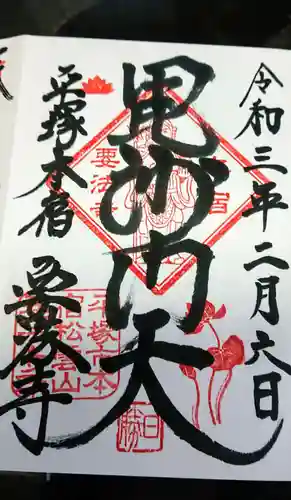 令和三年二月六日
毘沙门天
平塚本宿
要法寺
要法寺
本宿
平塚市本
白松雲山
日勝